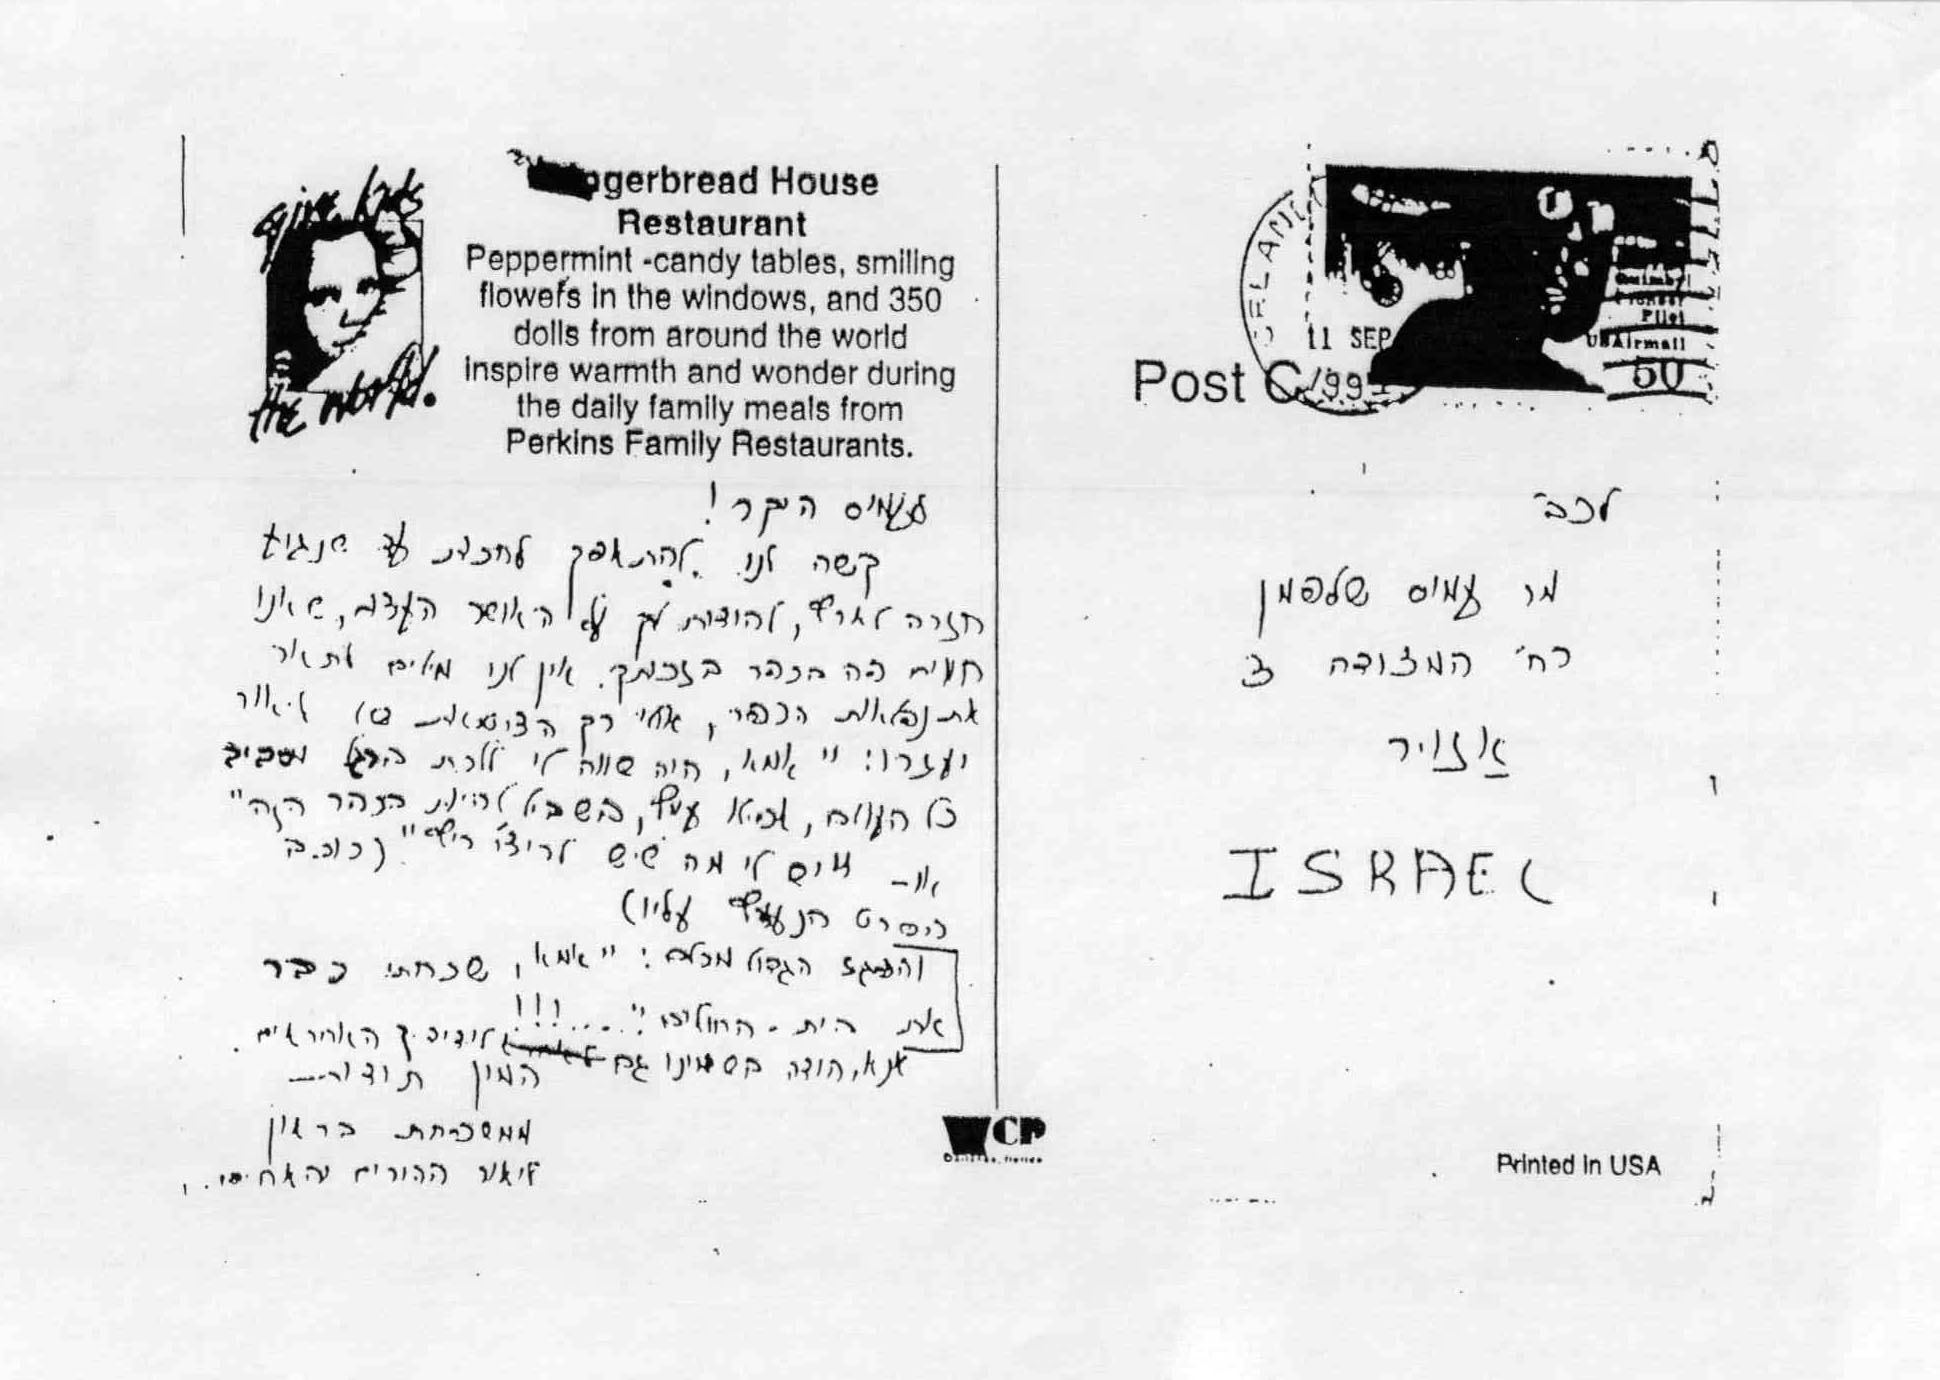 give kids
the world.
gerbread House
Restaurant
Peppermint -candy tables, smiling
flowers in the windows, and 350
dolls from around the world
inspire warmth and wonder during
the daily family meals from
Perkins Family Restaurants.
לעמוס היקר!
קשה לנו להתאפק לחכות עד שנגיע
חזרה לארץ, להודות לך על האושר העצום, שאנו
חווים פה בכפר בזכותך. אין לנו מילים לתאר
את נפלאות הכפר, אולי רק
: "אמא, היה שווה לי ללכת ברגל מסביב
כל העולם, בשביל להיות בכפר הזה"
או - שים לי מה שיש לריצ'רד" (כוכב
הסרט הנערץ עליו)
הגדול מכולם: "אמא, שכחתי כבר
את בית-החולים"....!!!
אנא, הודה בשמינו גם לידידיך האחראים.
המון תודות
ממשפחת בראון
ליאור ההורים והאחים.
ORLAND
11 SEP
199
Pioneer
Pilot
USAirmail
50
Post C
לכב'
מר עמוס שלפמן
רח' המצודה 3
אזור
ISRAEL
WCP
Orlando, Florida
Printed in USA